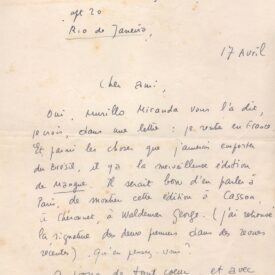 apt 20
Rio de Janeiro,
17 Avril
Cher Ami:
Oui, Murillo Miranda vous l'a dit,
je crois, dans une lettre: je rentre en France
Et parmi les choses que j'aimerais emporter
du Brésil, il y a la merveilleuse édition
de Mangue. Il serait bon d'en parler à
Paris, de montrer cette édition à Cassou,
à Cheronnet, à Waldemar George. (j'ai retrouvé
la signature des deux premiers dans des revues
récentes). Qu'en pensez-vous?
de tout coeur et avec